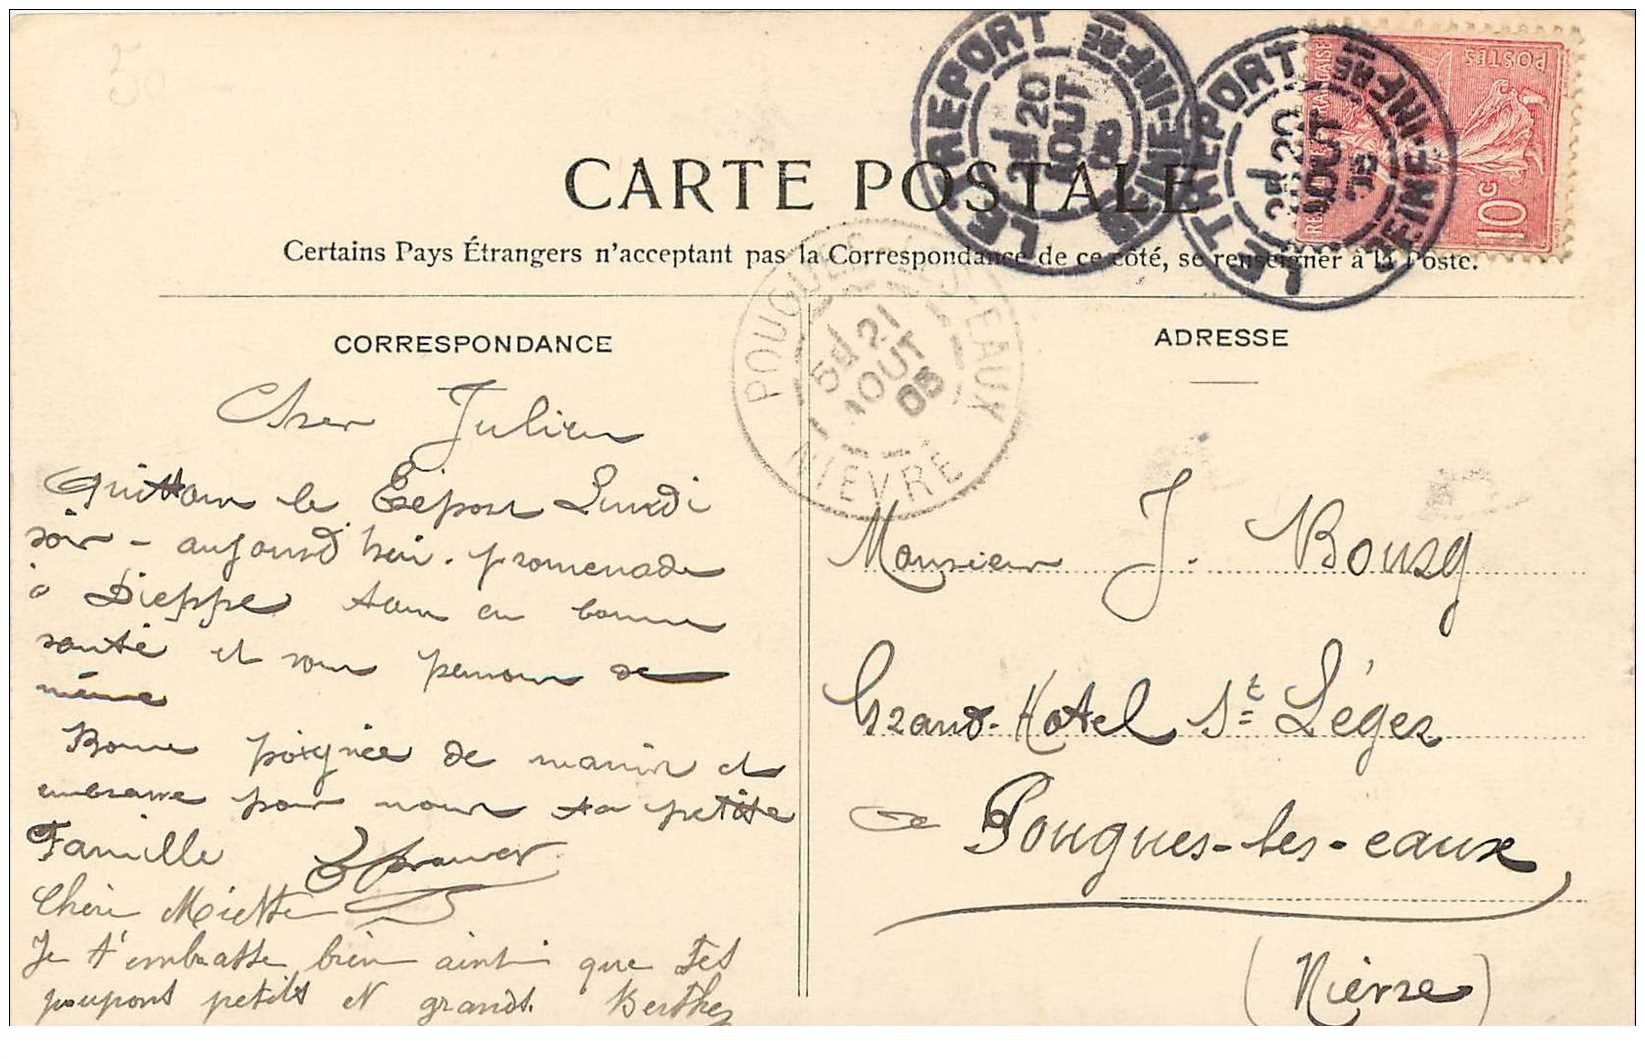 CARTE POSTALE
Certains Pays Étrangers n'acceptant pas la Correspondance de ce côté, se renseigner à la Poste.
LE TREPORT SEINE-INFRE
2E 20 AOUT 05
LE TREPORT SEINE-INFRE
2E 20 AOUT 05
POSTES
10c
POUGUES-LES-EAUX NIEVRE
5E 21 AOUT 05
CORRESPONDANCE
Cher Julien
Quittons le Tréport Lundi
soir - aujourd'hui. promenade
à Dieppe tous en bonne
santé et vous pensons de
même
Bonne poignée de mains et
embrasse pour nous ta petite
Famille
Chère Miette
Je t'embrasse bien ainsi que tes
poupons petits et grands. Berthe
ADRESSE
Monsieur J. Bourg
Grand-Hotel St Léger
Pougues-les-eaux
(Nièvre)